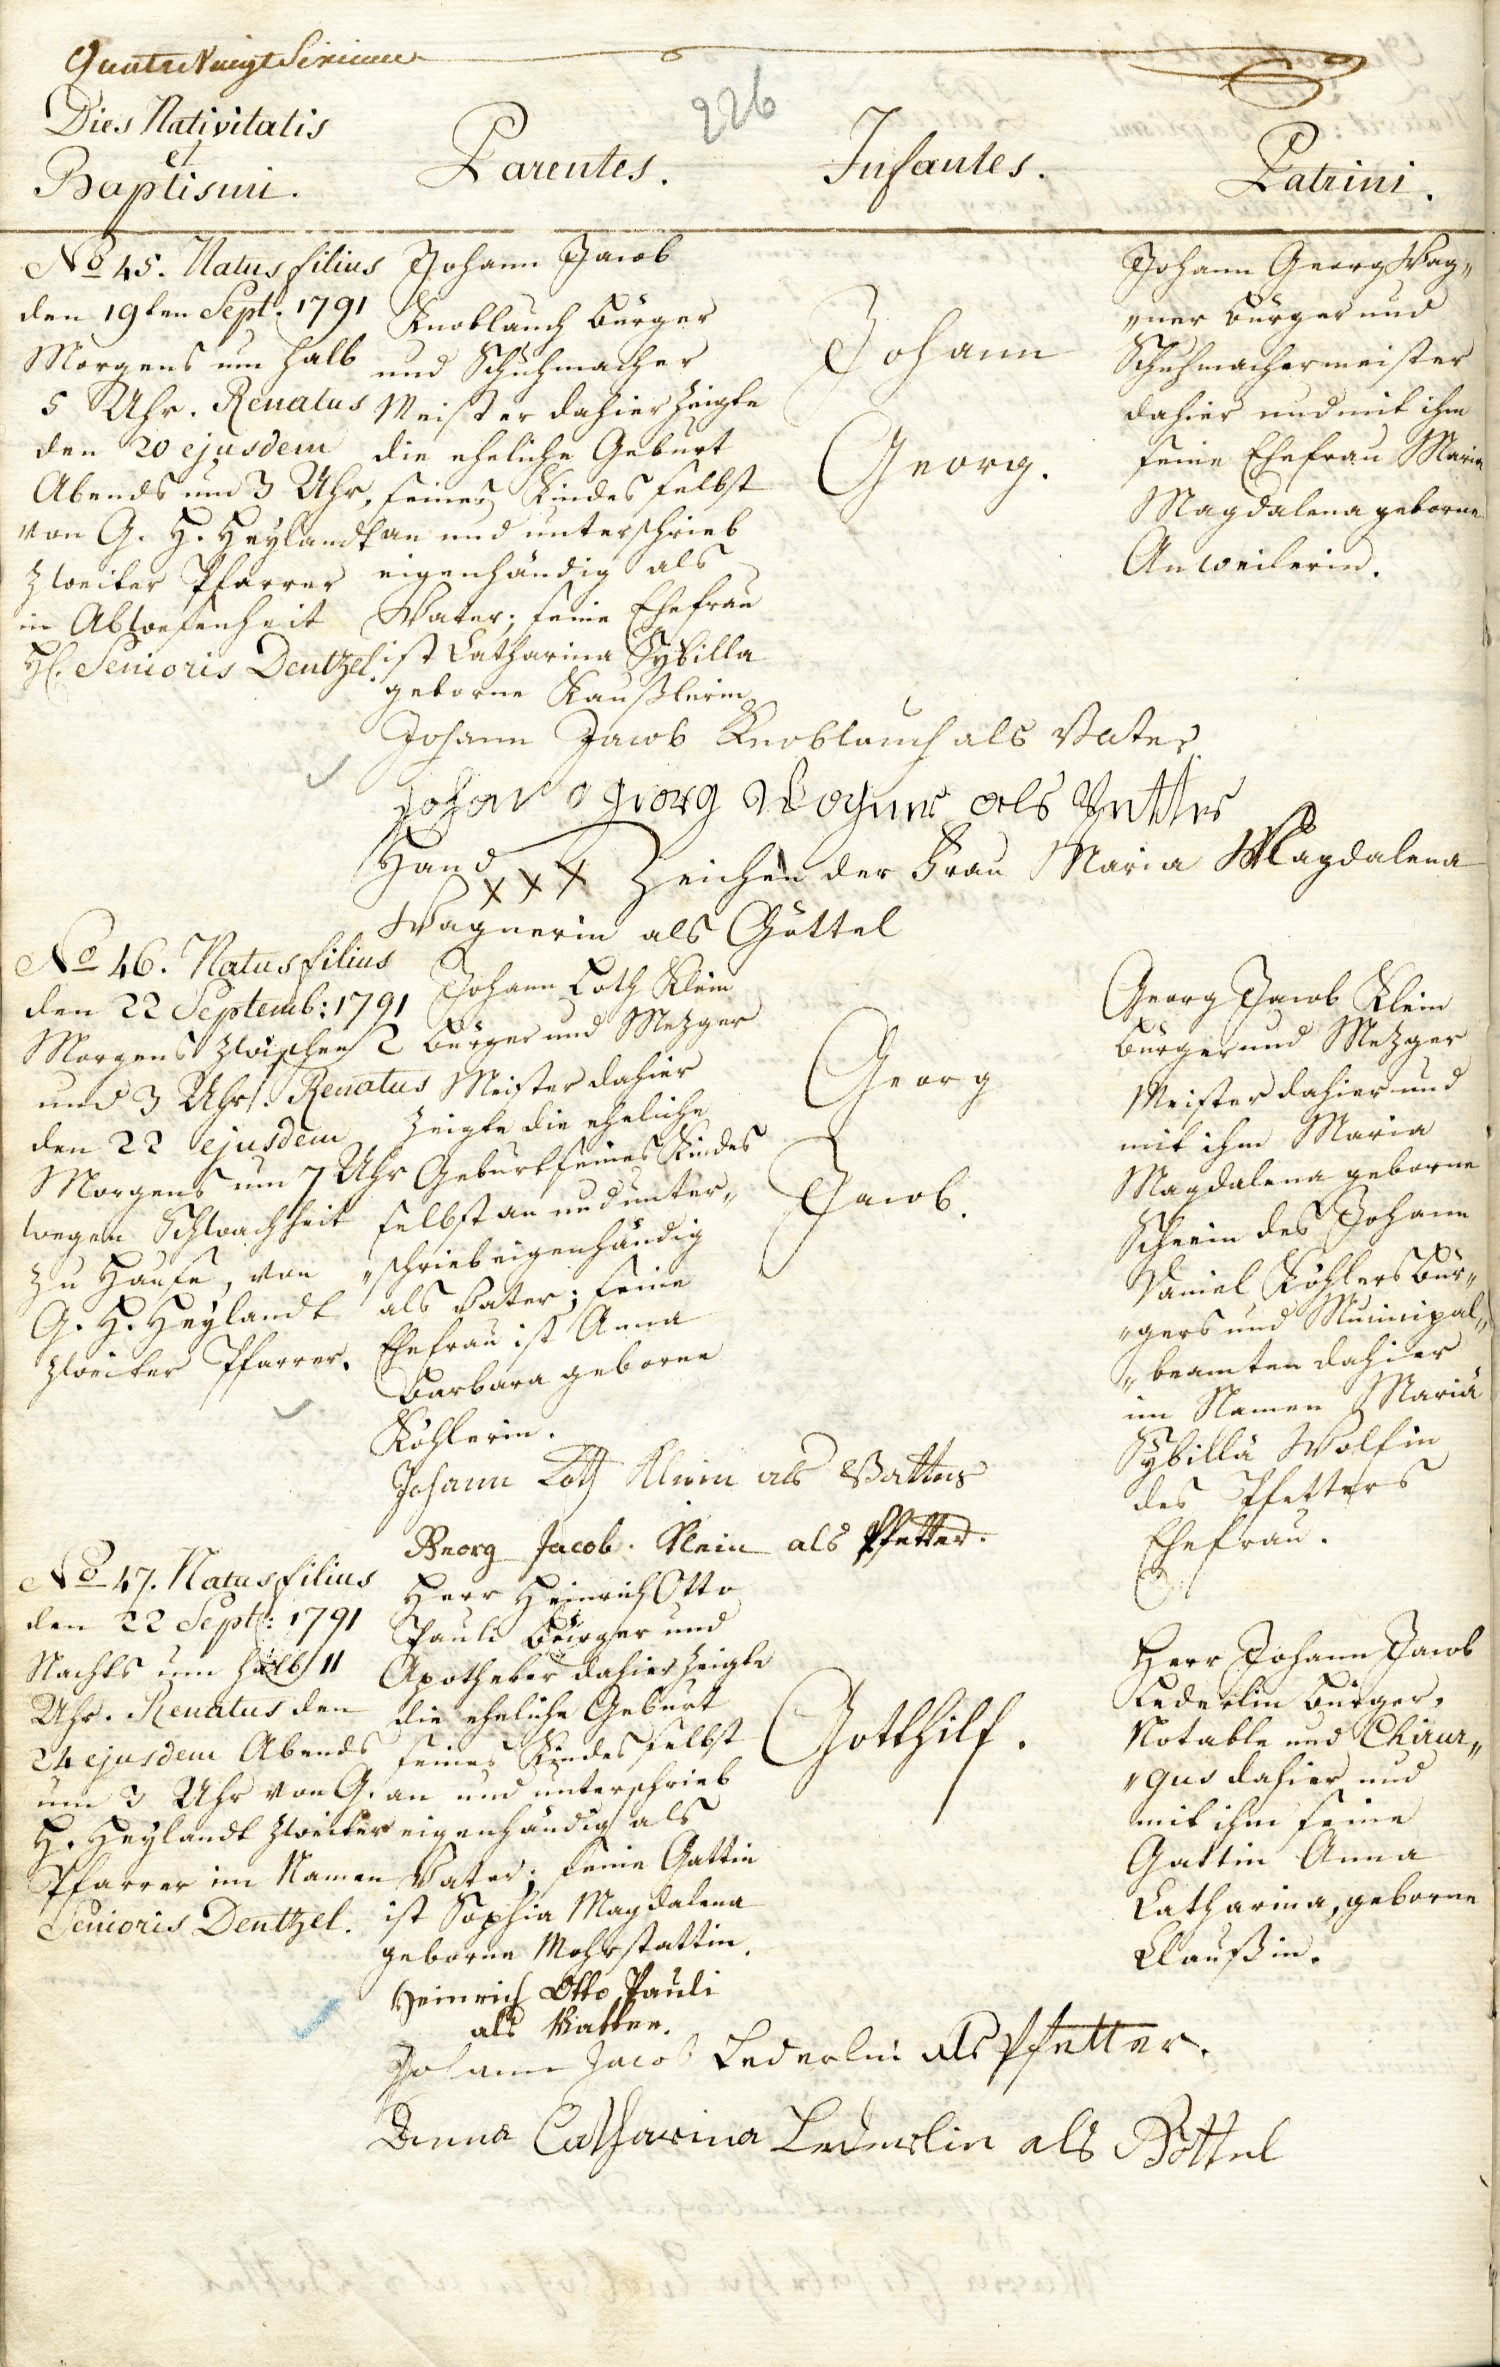 Quatre Vingt Sixieme
226
Dies Nativitatis
et
Baptismi.
Parentes.
Infantes.
Patrini.
No 45. Natus filius
den 19ten Sept. 1791
Morgens um halb
5 Uhr. Renatus
den 20 ejusdem
Abends um 3 Uhr,
von G. H. Heylandt
zweiter Pfarrer
in Abwesenheit
H. Senioris Dentzel.
Johann Jacob
Knoblauch Bürger
und Schuhmacher
Meister dahier zeigte
die eheliche Geburt
seines Kindes selbst
an und unterschrieb
eigenhändig als
Vater; seine Ehefrau
ist Catharina Sybilla
geborne Kaußlerin
Johann
Georg.
Johann Georg Wag„
„ner Bürger und
Schuhmachermeister
dahier und mit ihm
seine Ehefrau Maria
Magdalena geborne
Anweilerin.
Johann Jacob Knoblauch als Vater
Johan georg Wagner als Petter
Hand xxx Zeichen der Frau Maria Magdalena
Wagnerin als Göttel
No 46. Natus filius
den 22 Septemb: 1791
Morgens zwischen 2
und 3 Uhr. Renatus
den 22 ejusdem
Morgens um 7 Uhr
wegen Schwachheit
zu Hause, von
G. H. Heylandt
zweiter Pfarrer.
Johann Loth Klein
Bürger und Mezger
Meister dahier
zeigte die eheliche
Geburt seines Kindes
selbst an und unter„
„schrieb eigenhändig
als Vater; seine
Ehefrau ist Anna
Barbara geborne
Köhlerin.
Georg
Jacob.
Georg Jacob Klein
Bürger und Mezger
Meister dahier und
mit ihm Maria
Magdalena geborne
des Johann
Daniel Köhlers Bür„
„gers und Municipal„
„beamten dahier
im Namen Mariä
Sybillä Wolfin
des Pfetters
Ehefrau.
Johann Loth Klein als Vatter
Georg Jacob. Klein als Pfetter.
No 47. Natus filius
den 22 Sept: 1791
Nachts um halb 11
Uhr. Renatus den
24 ejusdem Abends
um 3 Uhr von G.
H. Heylandt zweiter
Pfarrer im Namen
Senioris Dentzel.
Herr Heinrich Otto
Pauli Bürger und
Apotheker dahier zeigte
die eheliche Geburt
seines Kindes selbst
an und unterschrieb
eigenhändig als
Vater; seine Gattin
ist Sophia Magdalena
geborne Mohrstattin.
Gotthilf.
Herr Johann Jacob
Lederlin Bürger,
Notable und Chirur„
„gus dahier und
mit ihm seine
Gattin Anna
Catharina, geborne
Claußin.
Heinrich Otto Pauli
als Vatter.
Johann Jacob Lederlin als Pfetter.
Anna Catharina Lederlin als Göttel